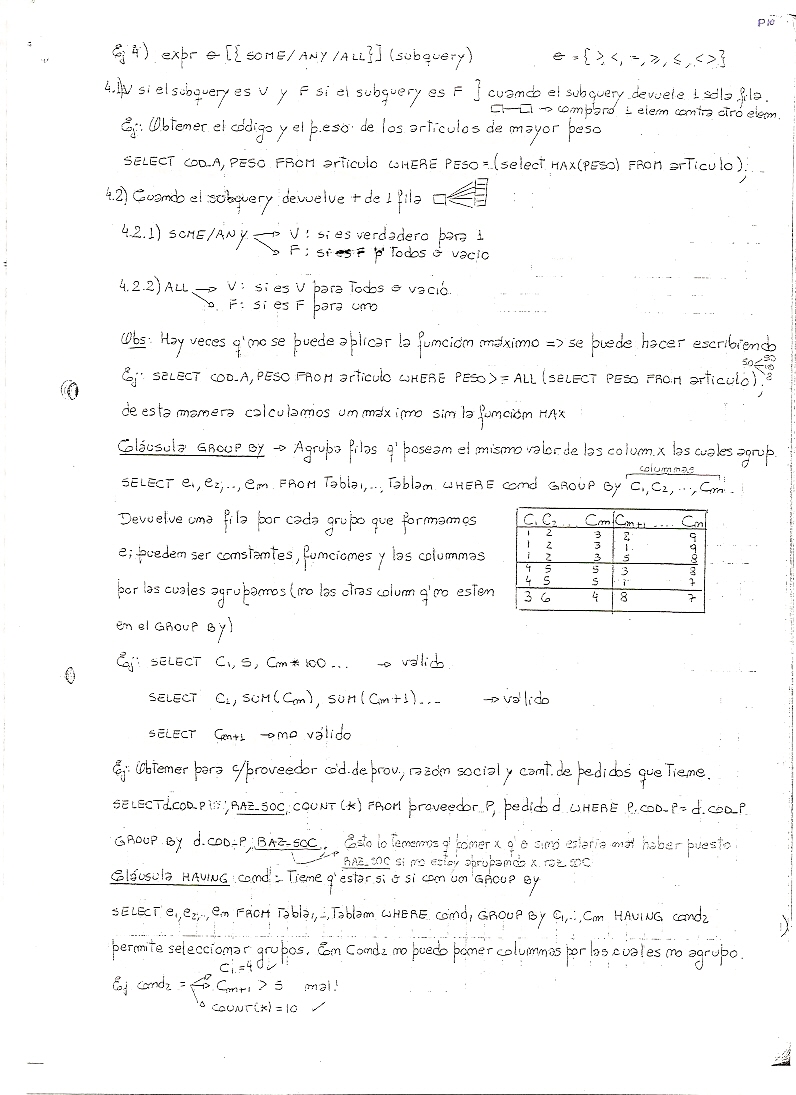 P10
Ej 4) expr ɵ [{SOME/ANY/ALL}] (subquery) ɵ = {>, <, =, ≥, ≤, <>}
4.1) V si el subquery es V y F si el subquery es F ] cuando el subquery devuelve 1 sola fila.
□—□ → comparo 1 elem contra otro elem.
Ej: Obtener el código y el peso de los artículos de mayor peso
SELECT COD_A, PESO FROM artículo WHERE PESO = (select MAX(PESO) FROM artículo);
4.2) Cuando el subquery devuelve + de 1 fila
4.2.1) SOME/ANY → V: si es verdadero para 1
→ F: si es F p' Todos o vacío
4.2.2) ALL → V: si es V para Todos o vacío.
→ F: si es F para uno
Obs: Hay veces q' no se puede aplicar la función máximo => se puede hacer escribiendo
Ej: SELECT COD_A, PESO FROM artículo WHERE PESO >= ALL (SELECT PESO FROM artículo);
de esta manera calculamos un máximo sin la función MAX
Cláusula GROUP BY → Agrupa filas q' posean el mismo valor de las column. x las cuales agrup.
columnas
SELECT e1, e2, .., em FROM Tabla1, .., Tablam WHERE cond GROUP BY C1, C2, ..., Cm
Devuelve una fila por cada grupo que formamos
ei pueden ser constantes, funciones y las columnas
por las cuales agrupamos (no las otras column q' no esten
en el GROUP BY)
C1 C2 ... Cm Cm+1 .... Cn
1 2 3 2 9
1 2 3 1 9
1 2 3 5 8
4 5 5 3 8
4 5 5 1 7
3 6 4 8 7
Ej: SELECT C1, 5, Cm * 100 ... → válido
SELECT C2, SUM(Cm), SUM(Cm+1)... → válido
SELECT Cm+1 → no válido
Ej: Obtener para c/proveedor cod. de prov., razón social y cant. de pedidos que Tiene.
SELECT d.COD_P, RAZ_SOC, COUNT(*) FROM proveedor P, pedido d WHERE P.COD_P = d.COD_P
GROUP BY d.COD_P, RAZ_SOC. Esto lo tenemos q' poner x q' si no estaría mal haber puesto
RAZ_SOC si no estoy agrupando x raz_soc
Cláusula HAVING cond: Tiene q' estar si o si con un GROUP BY
SELECT e1, e2, .., em FROM Tabla1, .., Tablam WHERE cond1 GROUP BY C1, .., Cm HAVING cond2
permite seleccionar grupos. En Cond2 no puedo poner columnas por las cuales no agrupo.
C1 = 40 ✓
Ej cond2 = → Cm+1 > 5 mal!
COUNT(*) = 10 ✓